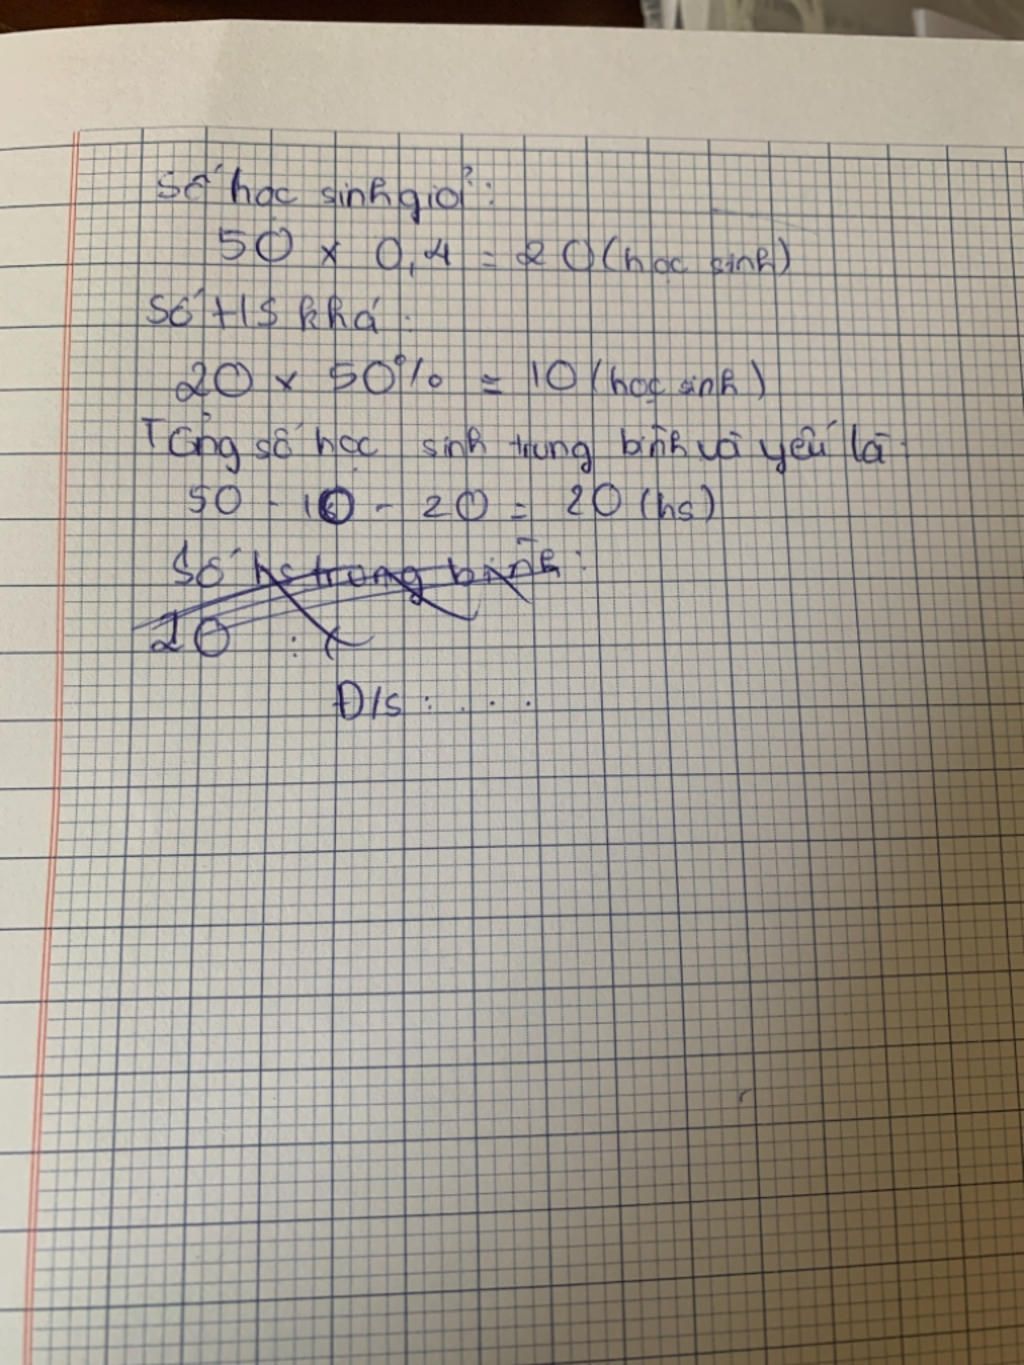 Số học sinh giỏi :
50 × 0,4 = 20 (học sinh)
Số HS khá :
20 × 50% = 10 (học sinh)
Tổng số học sinh trung bình và yếu là
50 - 10 - 20 = 20 (hs)
Số hs trong bình :
20 : (
Đ/s : . . . .